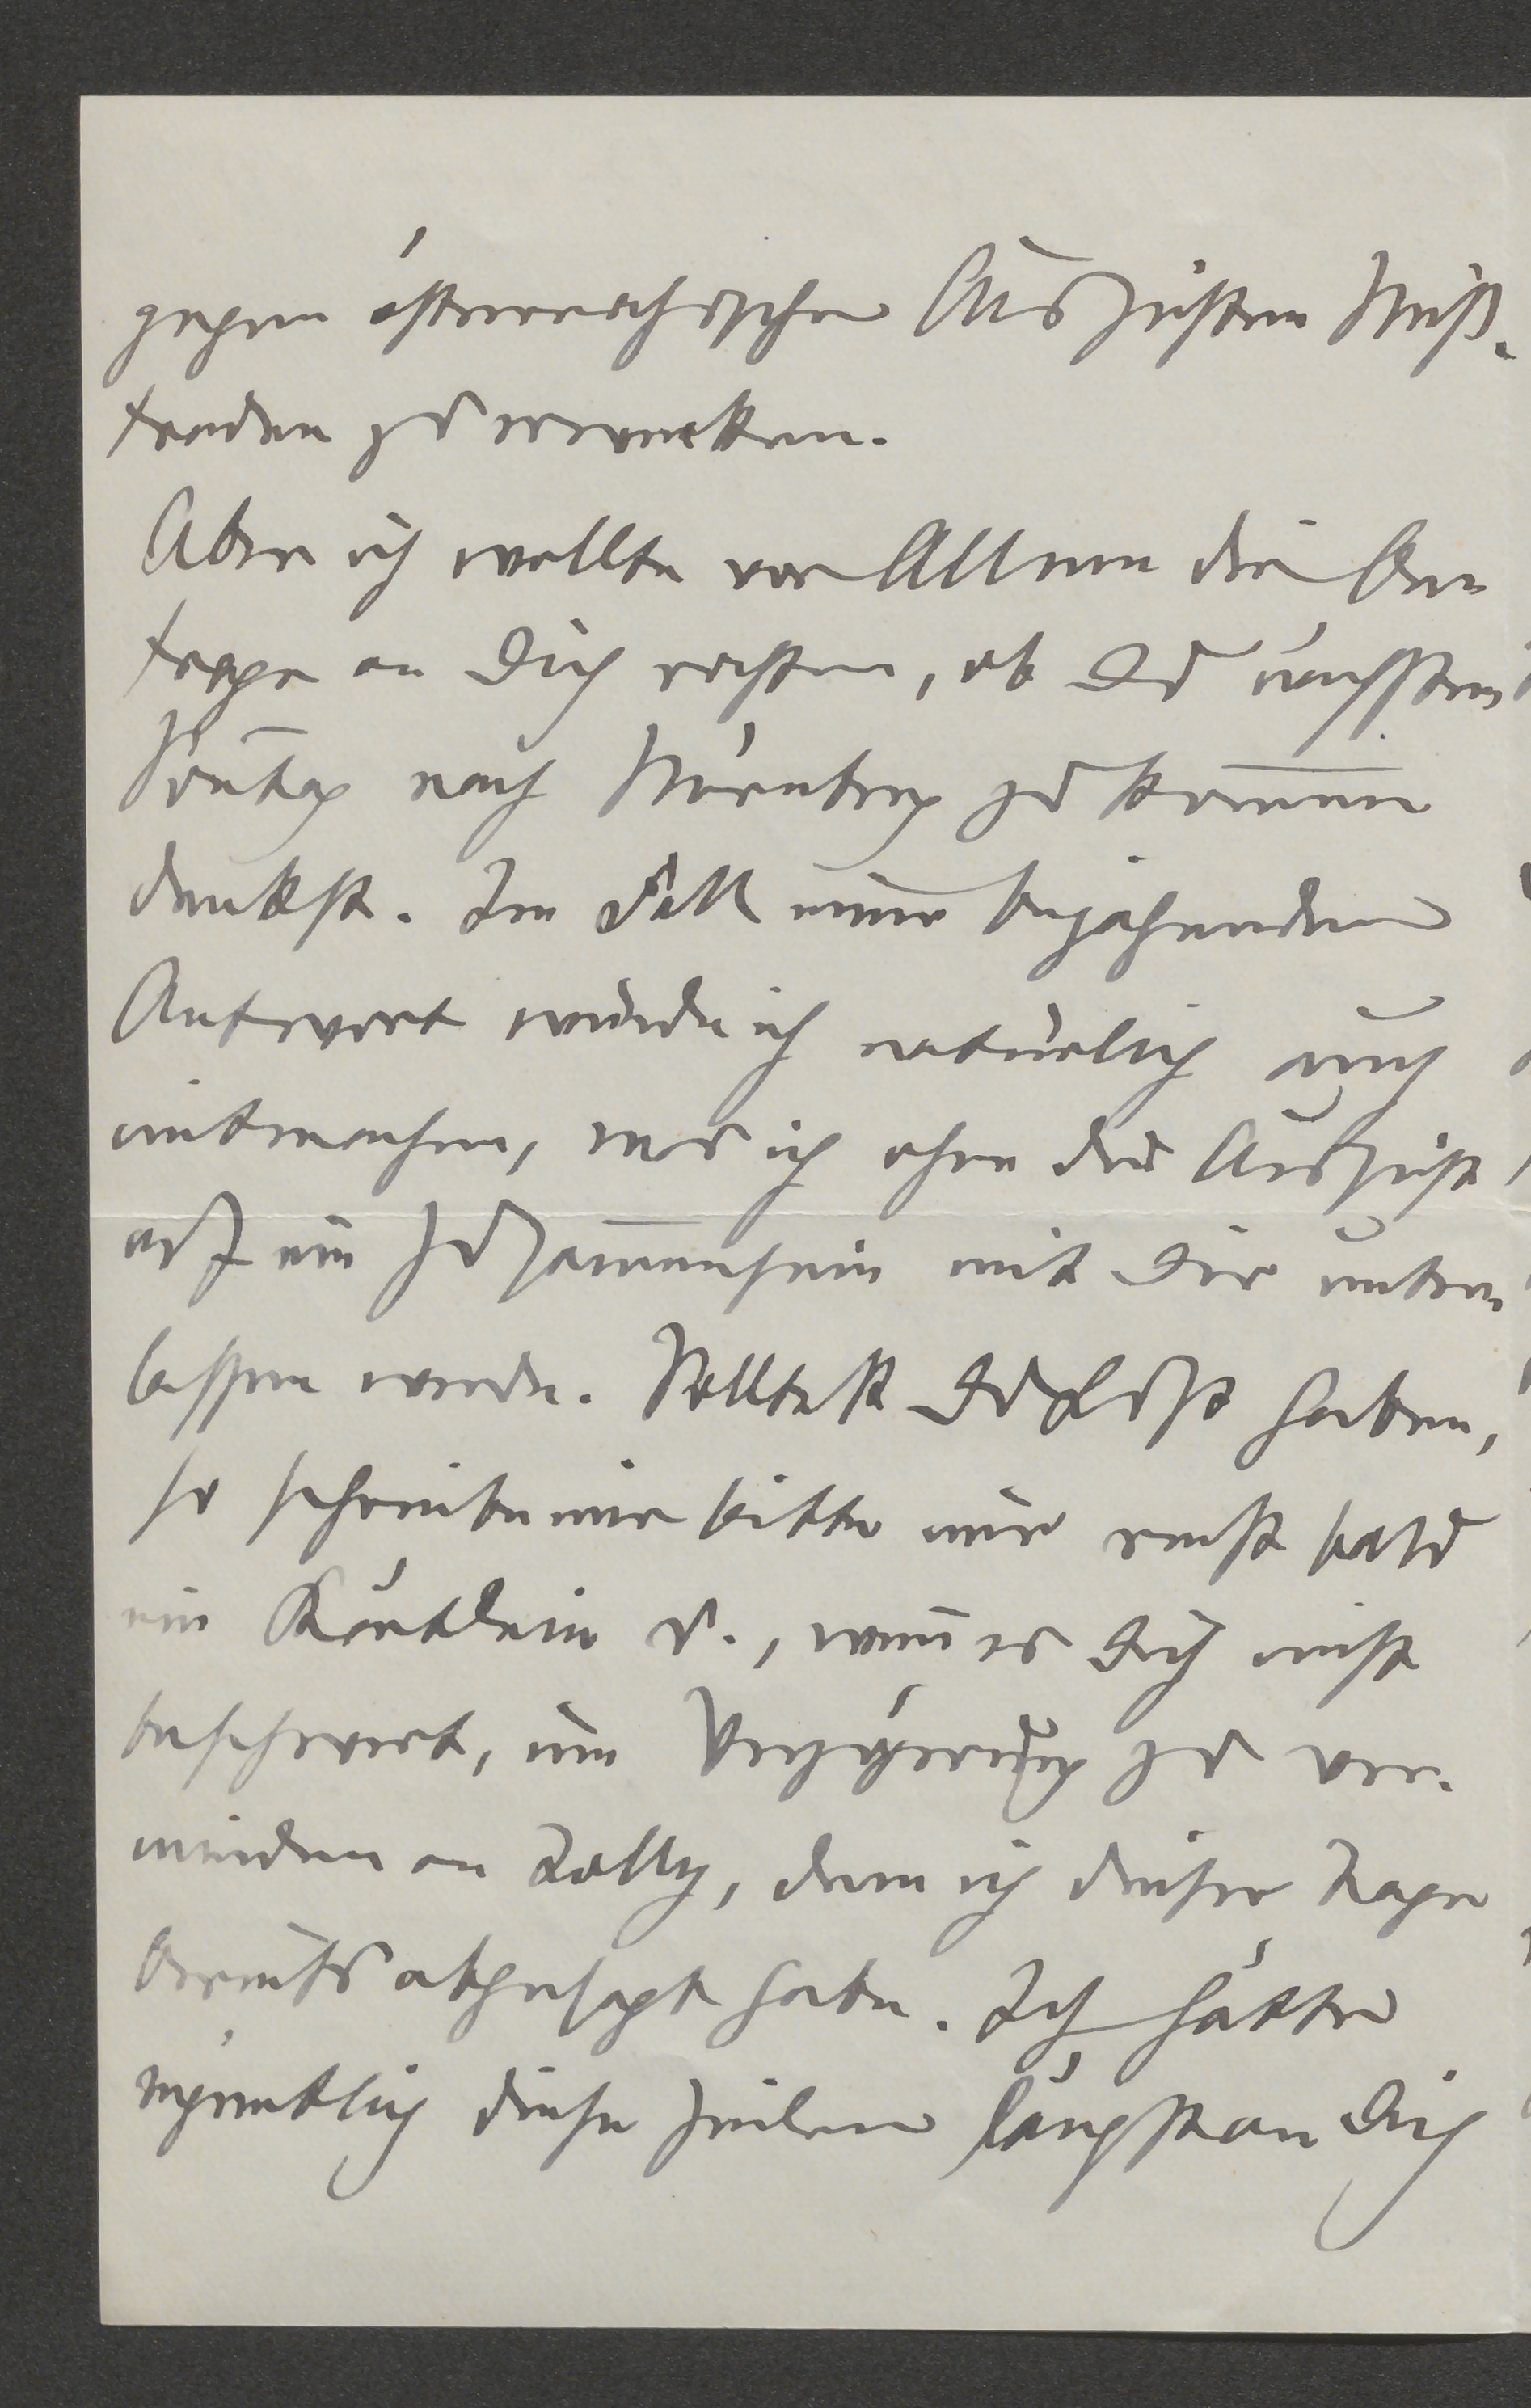 gegen österreichische Aussichten Miß-
trauen zu erwecken.
Aber ich wollte vor Allem die An-
frage an Dich richten, ob Du nächsten
Son̄tag nach Nürnberg zu kom̄en
denkst. Im Fall einer bejahenden
Antwort würde ich natürlich auch
mitmachen, was ich ohne die Aussicht
auf ein Zusam̄ensein mit Dir unter-
lassen werde. Solltest Du Lust haben,
so schreibe mir bitte nur recht bald
ein Kärtlein u., wen̄ es Dich nicht
beschwert, um Verzögerung zu ver-
meiden an Jolly, dem ich dieser Tage
bereits abgesagt habe. Ich hätte
eigentlich diese Zeilen längst an Dich